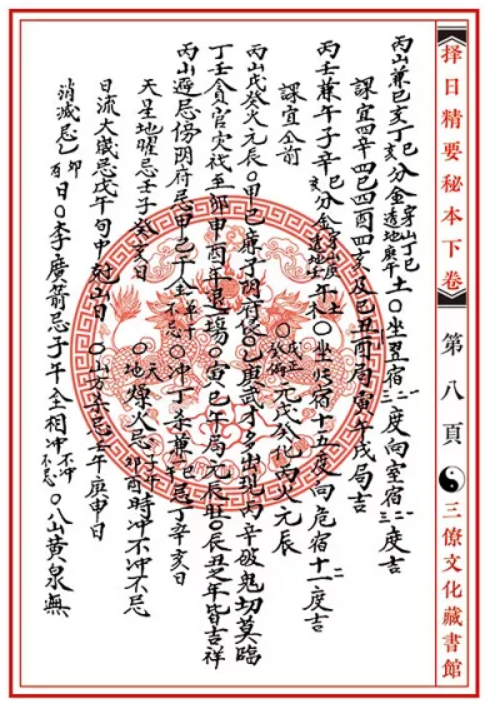 择日精要秘本下卷
第八頁
三僚文化藏書館
丙山兼巳亥丁巳亥分金穿山丁巳透地庚午土〇坐翌宿一二三度向室宿一二三度吉
課宜四辛四巳四酉四亥及巳丑酉局寅午戌局吉
丙壬兼午子辛巳亥分金年〇坐宿十五度向危宿十一二度吉
課宜仝前
元戊癸化丙火元辰
丙山戊癸火元辰〇甲巳廉子阴府侵〇乙庚武才多出現丙辛破鬼切莫臨
丁壬貪官灾祸至卯申酉年退一場〇寅巳午局元辰旺〇辰丑之年皆吉祥
丙山避忌傍阴府忌甲乙丁全单不忌〇冲丁未兼巳年忌丁辛亥日
天星地曜忌壬子癸亥日〇天地燥火忌子午卯酉時冲不冲不忌
日流大歲忌戊午旬中日〇山方杀忌壬午庚申日
消滅忌乙卯酉日〇李廣箭忌子午全相冲不冲不忌〇八山黄泉無